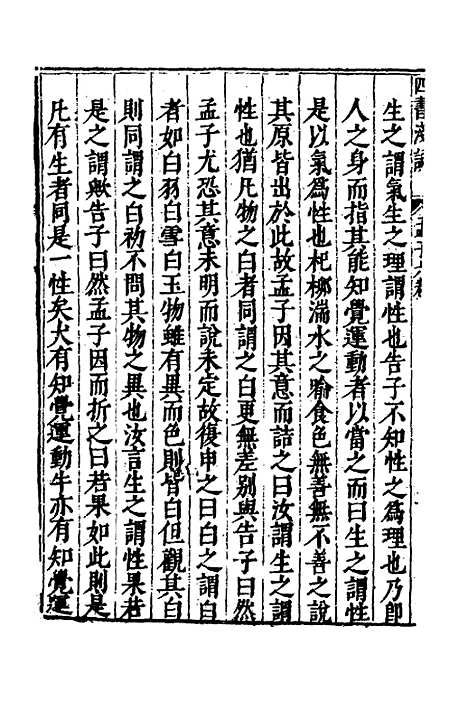 生之謂氣生之理謂性也告子不知性之為理也乃即
人之身而指其能知覺運動者以當之而曰生之謂性
是以氣為性也杞柳湍水之喻食色無善無不善之說
其原皆出於此故孟子因其意而詰之曰汝謂生之謂
性也猶凡物之白者同謂之白更無差別與告子曰然
孟子尤恐其意未明而說未定故復申之曰白之謂白
者如白羽白雪白玉物雖有異而色則皆白但觀其白
則同謂之白初不問其物之異也汝言生之謂性果若
是之謂歟告子曰然孟子因而折之曰若果如此則是
凡有生者同是一性矣犬有知覺運動牛亦有知覺運